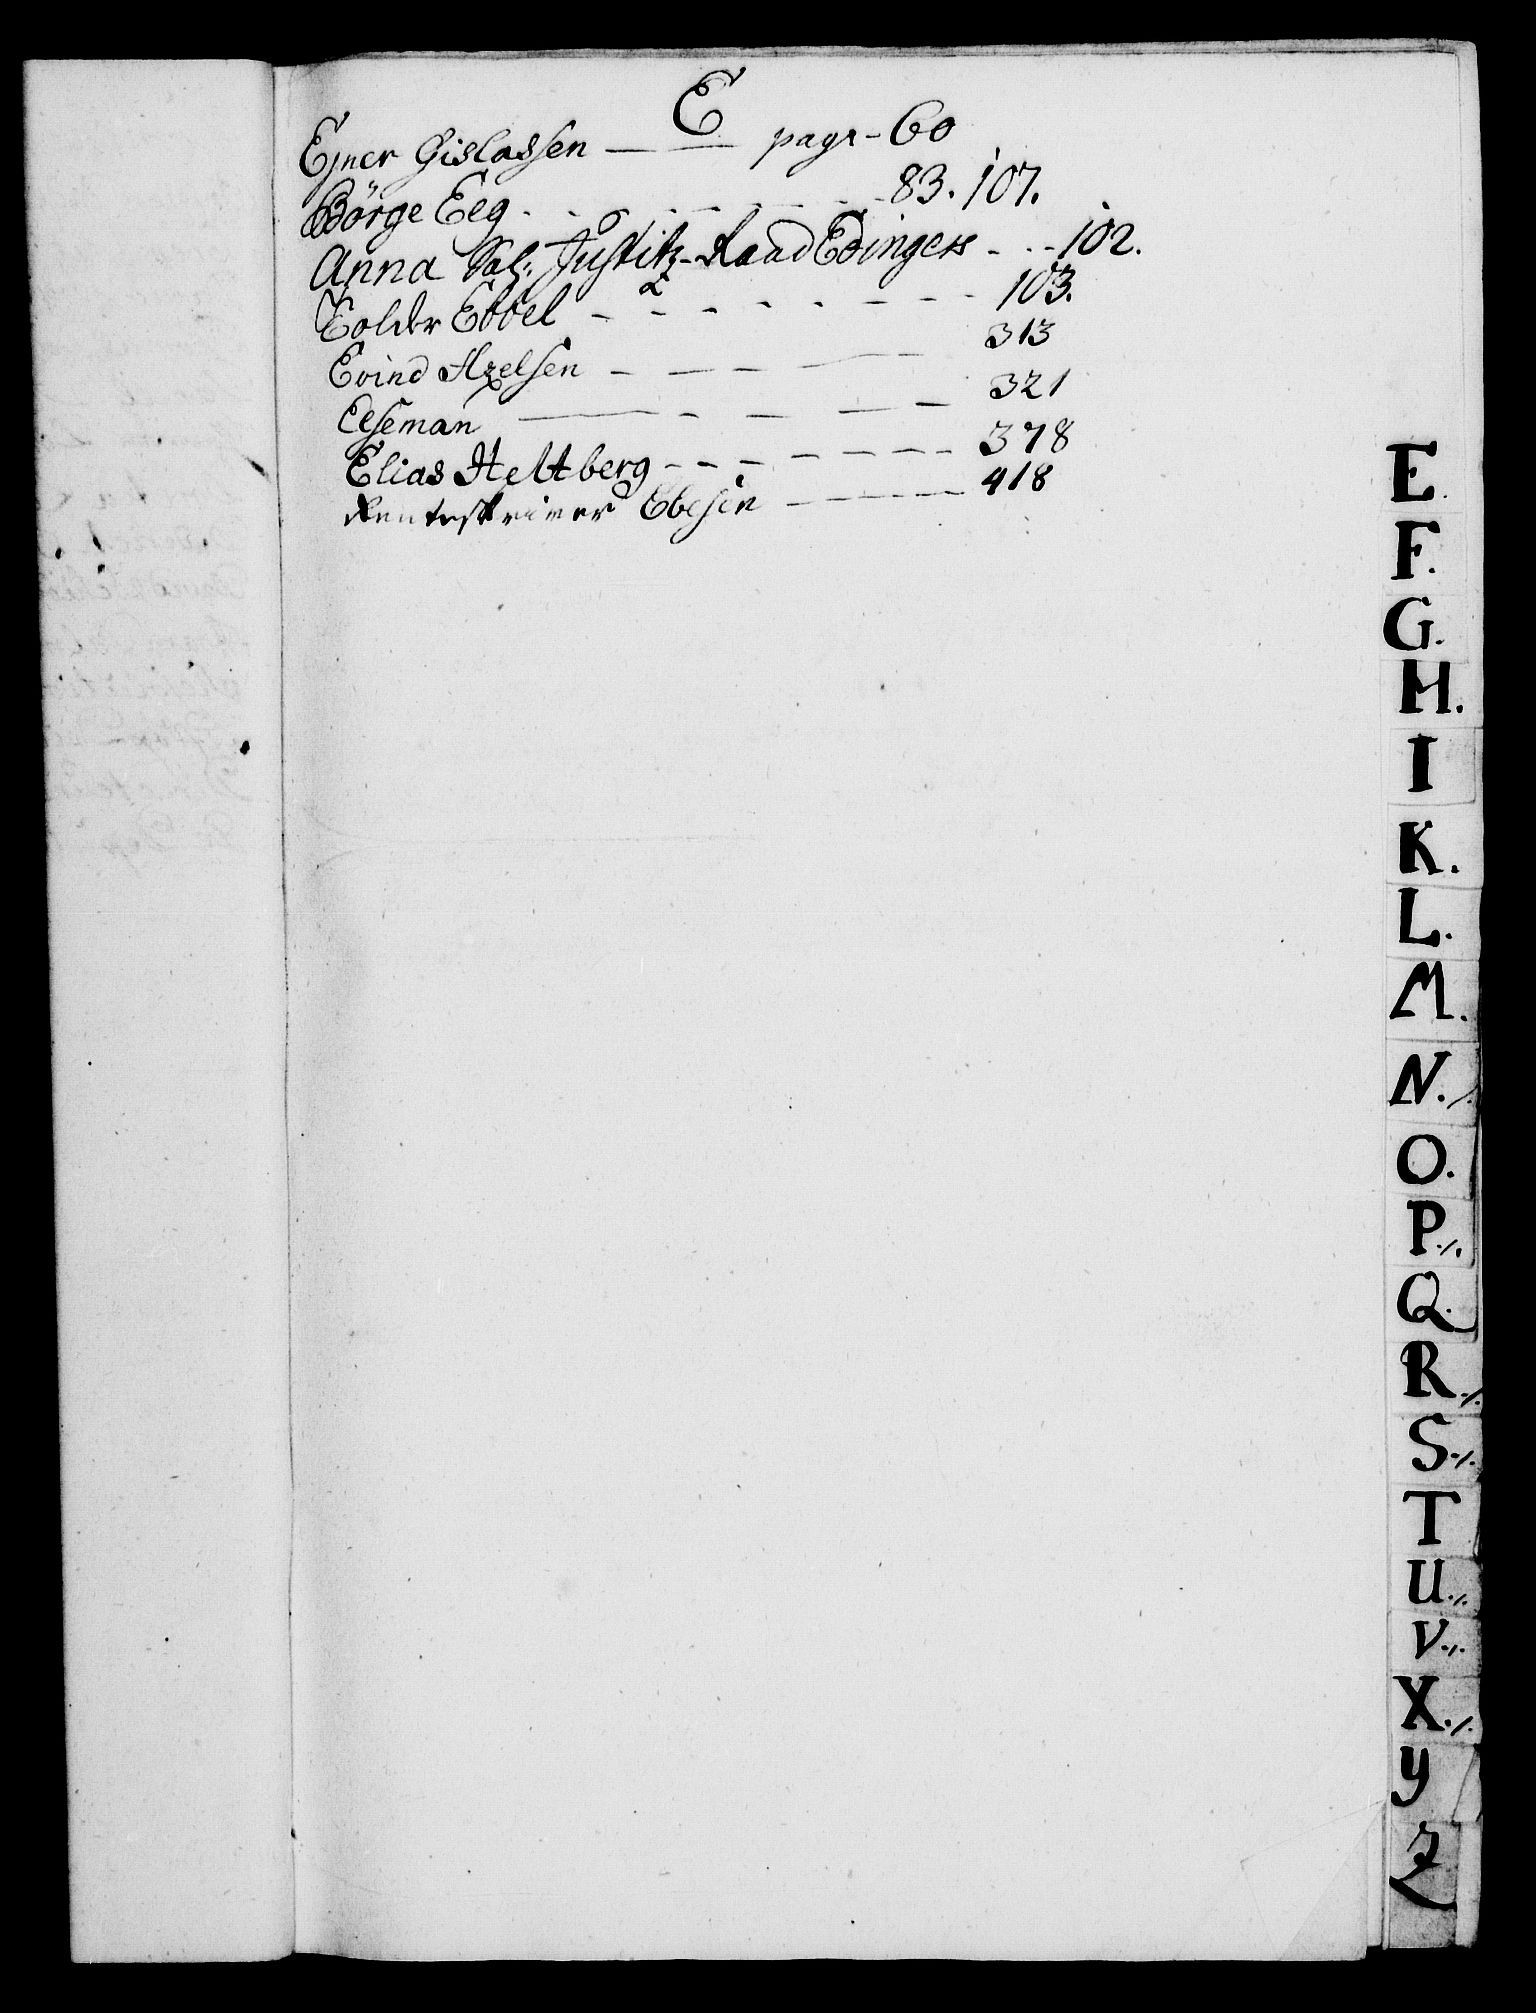 E
Ejner Gislassen — — pag: - 60
Börge Eeg - - - - - - - 83. 107.
Anna Sal: Justitz-Raad Edingers - - - 102.
Eolder Ebbel - - - - - - - - 103.
Evind Axelsen - - - - - 313
Eeseman — - - - - 321
Elias Heltberg - - - - - - - 378
Renteskriver Ebesen - - - - 418
E.
F.
G.
H.
I
K.
L.
M.
N./.
O.
P./.
Q.
R./.
S./.
T
U./.
V./.
X./.
y
Z